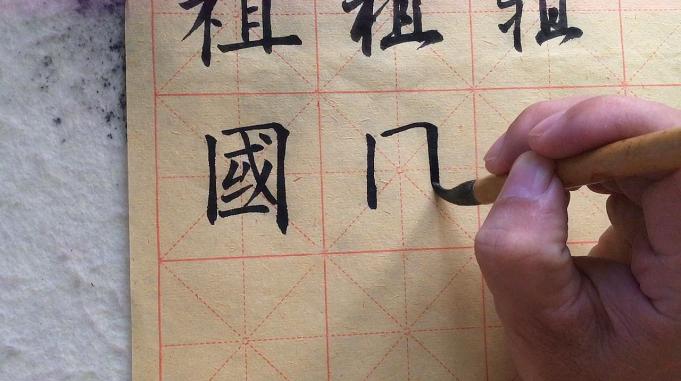 祖祖祖
國冂